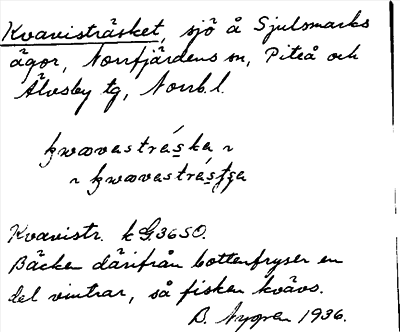 Kvavisträsket, sjö å Sjulsmarks
ägor, Norrfjärdens sn, Piteå och
Älvsby tg, Norrb.l.
kwavestráska ~
~ kwavestrásʃʃa
Kvavistr. k G.36 SO.
Bäcken därifrån bottenfryser en
del vintrar, så fisken kvävs.
B. Nygren 1936.